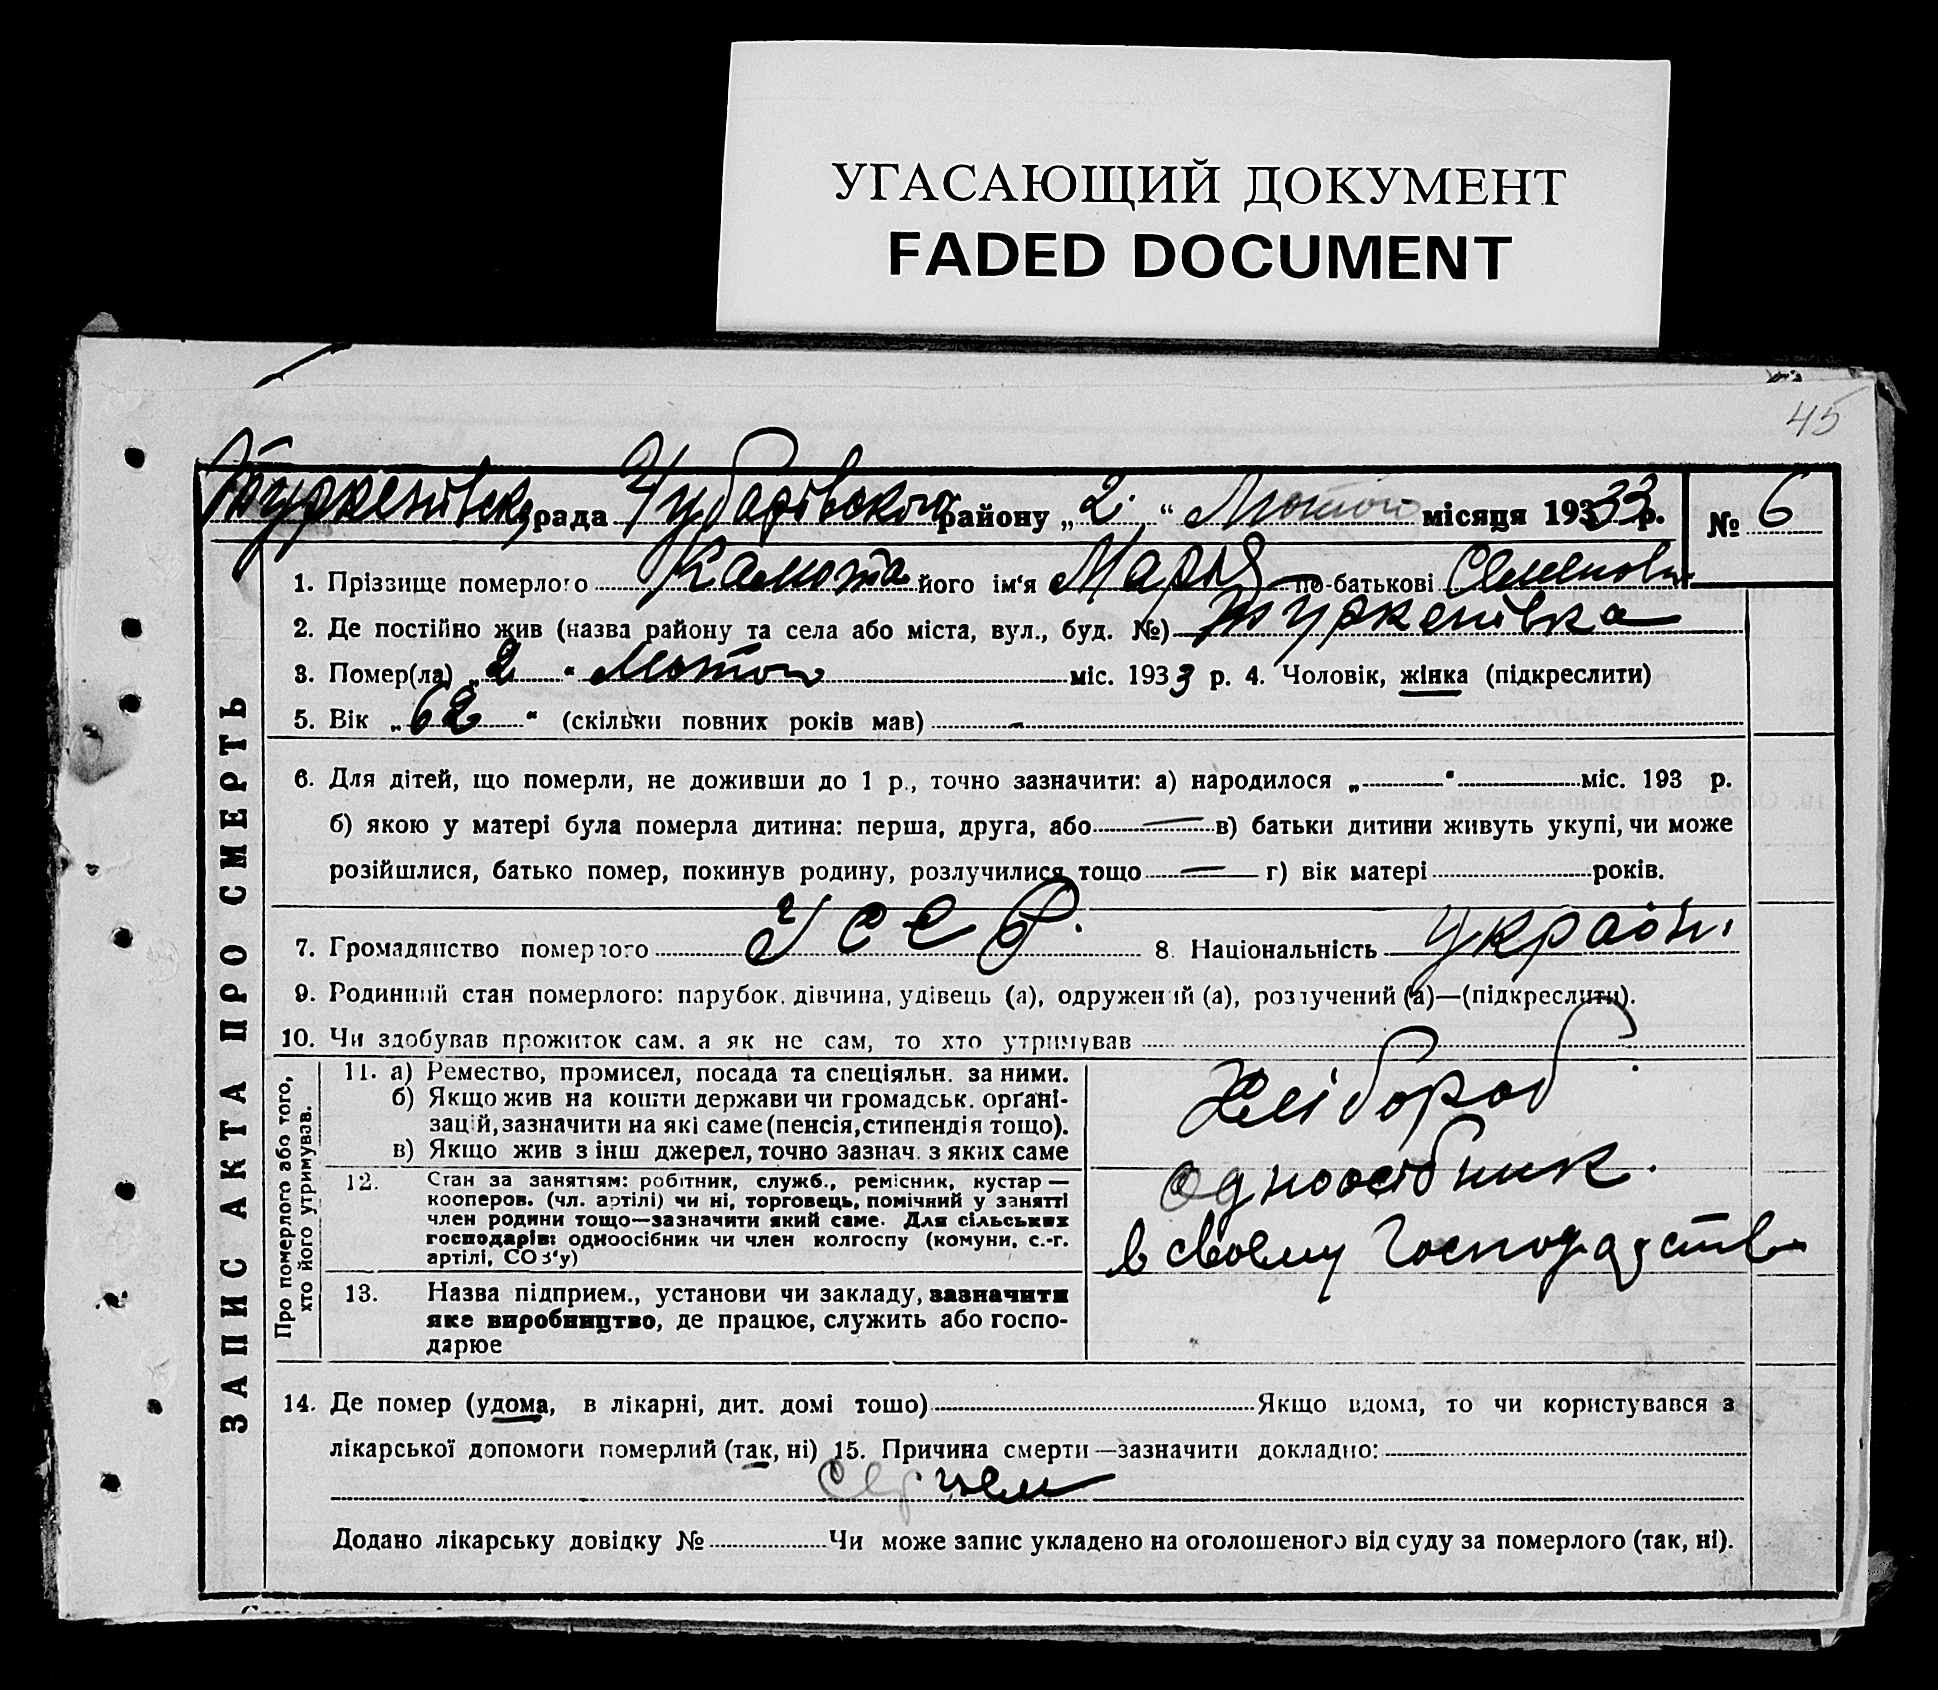 УГАСАЮЩИЙ ДОКУМЕНТ
FADED DOCUMENT
45
Туркенівська рада Чубарівського району „2“ Лютого місяця 1933 р. № 6
ЗАПИС АКТА ПРО СМЕРТЬ
1. Прізвище померлого Камота його ім‘я Марья по-батькові Семеновн
2. Де постійно жив (назва району та села або міста, вул., буд. №) Туркенівка
3. Помер(ла) „2“ Лютого міс. 1933 р. 4. Чоловік, жінка (підкреслити)
5. Вік „62“ (скільки повних років мав)
6. Для дітей, що померли, не доживши до 1 р., точно зазначити: а) народилося „ “ міс. 193 р.
б) якою у матері була померла дитина: перша, друга, або — в) батьки дитини живуть укупі, чи може
розійшлися, батько помер, покинув родину, розлучилися тощо — г) вік матері років.
7. Громадянство померлого УССР. 8. Національність україн.
9. Родинний стан померлого: парубок, дівчина, удівець (а), одружений (а), розлучений (а)—(підкреслити).
10. Чи здобував прожиток сам, а як не сам, то хто утримував
Про померлого або того, хто його утримував.
11. а) Ремество, промисел, посада та спеціяльн. за ними.
б) Якщо жив на кошти держави чи громадськ. орґані-
зацій, зазначити на які саме (пенсія, стипендія тощо).
в) Якщо жив з інш джерел, точно зазнач. з яких саме
Хлібороб
12. Стан за заняттям: робітник, служб., ремісник, кустар —
кооперов. (чл. артілі) чи ні, торговець, помічний у занятті
член родини тощо—зазначити який саме. Для сільських
господарів: одноосібник чи член колгоспу (комуни, с.-г.
артілі, СОЗ‘у)
одноосібник.
в своєму господарстві
13. Назва підприєм., установи чи закладу, зазначити
яке виробництво, де працює, служить або госпо-
дарює
14. Де помер (удома, в лікарні, дит. домі тощо) Якщо вдома, то чи користувався з
лікарської допомоги померлий (так, ні) 15. Причина смерти—зазначити докладно:
серцем
Додано лікарську довідку № Чи може запис укладено на оголошеного від суду за померлого (так, ні).